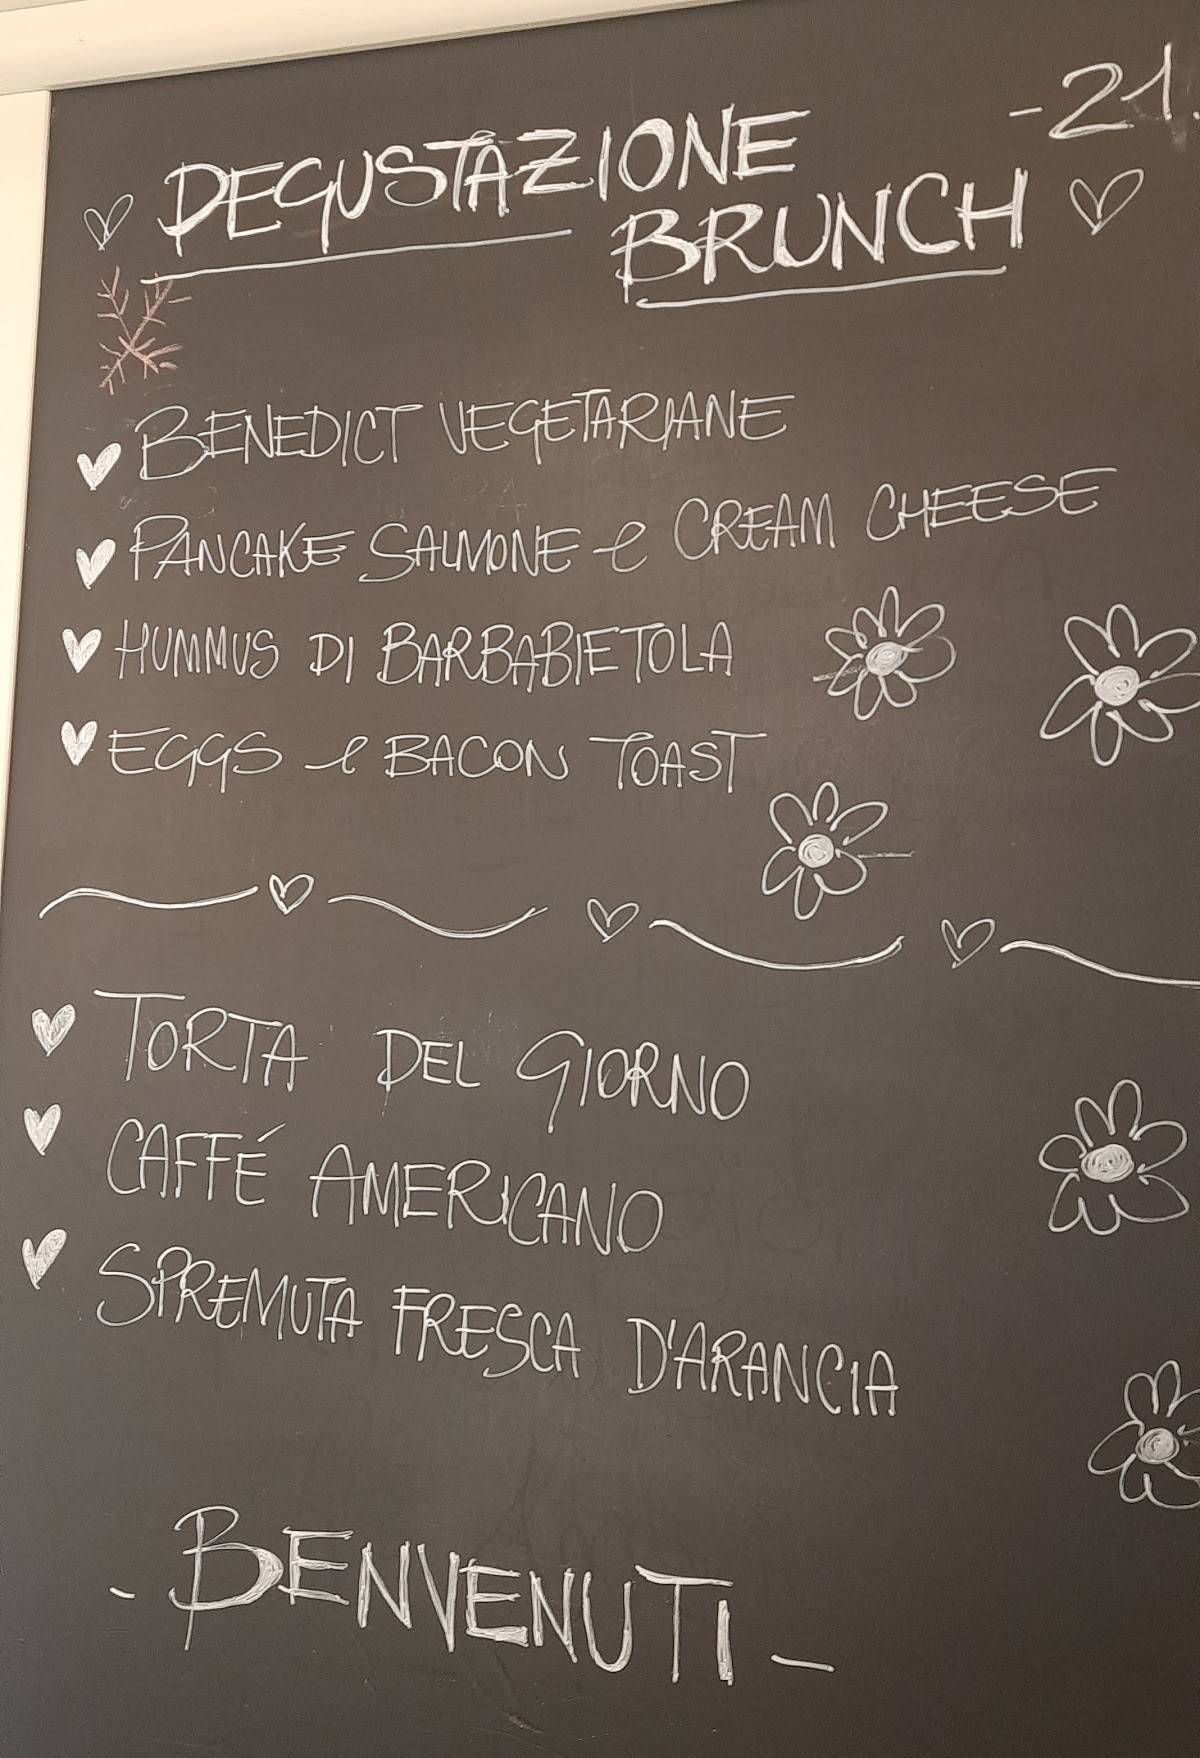 - 21.
DEGUSTAZIONE
BRUNCH
BENEDICT VEGETARIANE
PANCAKE SALMONE e CREAM CHEESE
HUMMUS DI BARBABIETOLA
EGGS e BACON TOAST
TORTA DEL GIORNO
CAFFÉ AMERICANO
SPREMUTA FRESCA D'ARANCIA
- BENVENUTI -